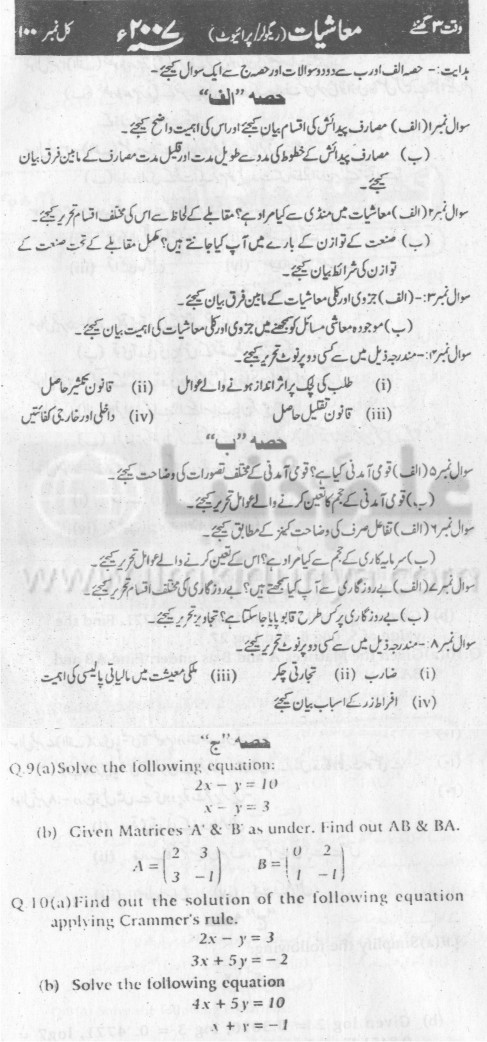 وقت ۳ گھنٹے معاشیات (ریگولر/پرائیوٹ) ۲۰۰۷ء کل نمبر ۱۰۰
ہدایت:- حصہ الف اور ب سے دو دو سوالات اور حصہ ج سے ایک سوال کیجئے-
حصہ "الف"
سوال نمبر۱ (الف) مصارف پیدائش کی اقسام بیان کیجئے اور اس کی اہمیت واضح کیجئے-
(ب) مصارف پیدائش کے خطوط کی مدد سے طویل مدت اور قلیل مدت مصارف کے مابین فرق بیان
کیجئے-
سوال نمبر۲ (الف) معاشیات میں منڈی سے کیا مراد ہے؟ مقابلے کے لحاظ سے اس کی مختلف اقسام تحریر کیجئے-
(ب) صنعت کے توازن کے بارے میں آپ کیا جانتے ہیں؟ مکمل مقابلے کے تحت صنعت کے
توازن کی شرائط بیان کیجئے-
سوال نمبر۳:- (الف) جزوی اور کلی معاشیات کے مابین فرق بیان کیجئے-
(ب) موجودہ معاشی مسائل کو سمجھنے میں جزوی اور کلی معاشیات کی اہمیت بیان کیجئے-
سوال نمبر۴:- مندرجہ ذیل میں سے کسی دو پر نوٹ تحریر کیجئے-
(i) طلب کی لچک پر اثر انداز ہونے والے عوامل (ii) قانون تکثیر حاصل
(iii) قانون تقلیل حاصل (iv) داخلی اور خارجی کفائتیں
حصہ "ب"
سوال نمبر۵ (الف) قومی آمدنی کیا ہے؟ قومی آمدنی کے مختلف تصورات کی وضاحت کیجئے-
(ب) قومی آمدنی کے حجم کا تعین کرنے والے عوامل تحریر کیجئے-
سوال نمبر۶ (الف) تفاعل صرف کی وضاحت کینز کے مطابق کیجئے-
(ب) سرمایہ کاری کے حجم سے کیا مراد ہے؟ اس کے تعین کرنے والے عوامل تحریر کیجئے-
سوال نمبر۷ (الف) بے روزگاری سے آپ کیا سمجھتے ہیں؟ بے روزگاری کی مختلف اقسام تحریر کیجئے-
(ب) بے روزگاری پر کس طرح قابو پایا جا سکتا ہے؟ تجاویز تحریر کیجئے-
سوال نمبر۸:- مندرجہ ذیل میں سے کسی دو پر نوٹ تحریر کیجئے-
(i) ضارب (ii) تجارتی چکر (iii) ملکی معیشت میں مالیاتی پالیسی کی اہمیت
(iv) افراط زر کے اسباب بیان کیجئے
حصہ "ج"
Q.9(a)Solve the following equation:
2x – y = 10
x – y = 3
(b) Given Matrices 'A' & 'B' as under. Find out AB & BA.
A = (2 3 B = (0 2
3 –1) 1 –1)
Q 10(a)Find out the solution of the following equation
applying Crammer's rule.
2x – y = 3
3x + 5y = –2
(b) Solve the following equation
4x + 5y = 10
x + y = –1